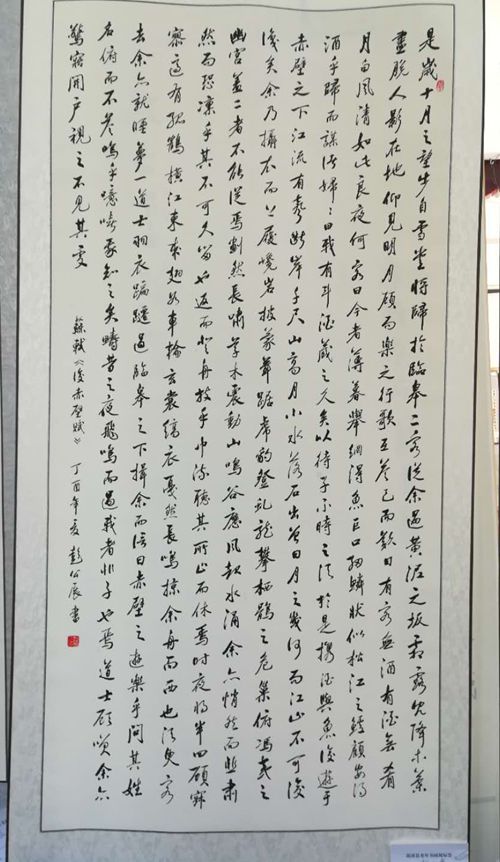 是歲十月之望步自雪堂將歸於臨皋二客從余過黃泥之坂霜露既降木葉
盡脫人影在地仰見明月顧而樂之行歌互答已而歎曰有客無酒有酒無肴
月白風清如此良夜何客曰今者薄暮舉網得魚巨口細鱗狀似松江之鱸顧安得
酒乎歸而謀諸婦〻曰我有斗酒藏之久矣以待子不時之須於是攜酒與魚復遊于
赤壁之下江流有聲斷岸千尺山高月小水落石出曾日月之幾何而江山不可復
識矣余乃攝衣而上履巉岩披蒙茸踞虎豹登虬龍攀栖鶻之危巢俯馮夷之
幽宮蓋二者不能從焉劃然長嘯草木震動山鳴谷應風起水涌余亦悄然而悲肅
然而恐凜乎其不可久留也返而登舟放乎中流聽其所止而休焉時夜將半四顧寂
寥適有孤鶴橫江東來翅如車輪玄裳縞衣戛然長鳴掠余舟而西也須臾客
去余亦就睡夢一道士羽衣蹁躚過臨皋之下揖余而言曰赤壁之遊樂乎問其姓
名俯而不答嗚乎噫嘻我知之矣疇昔之夜飛鳴而過我者非子也焉道士顧笑余亦
驚寤開戶視之不見其處
蘇軾《後赤壁賦》 丁酉年夏 彭公辰書